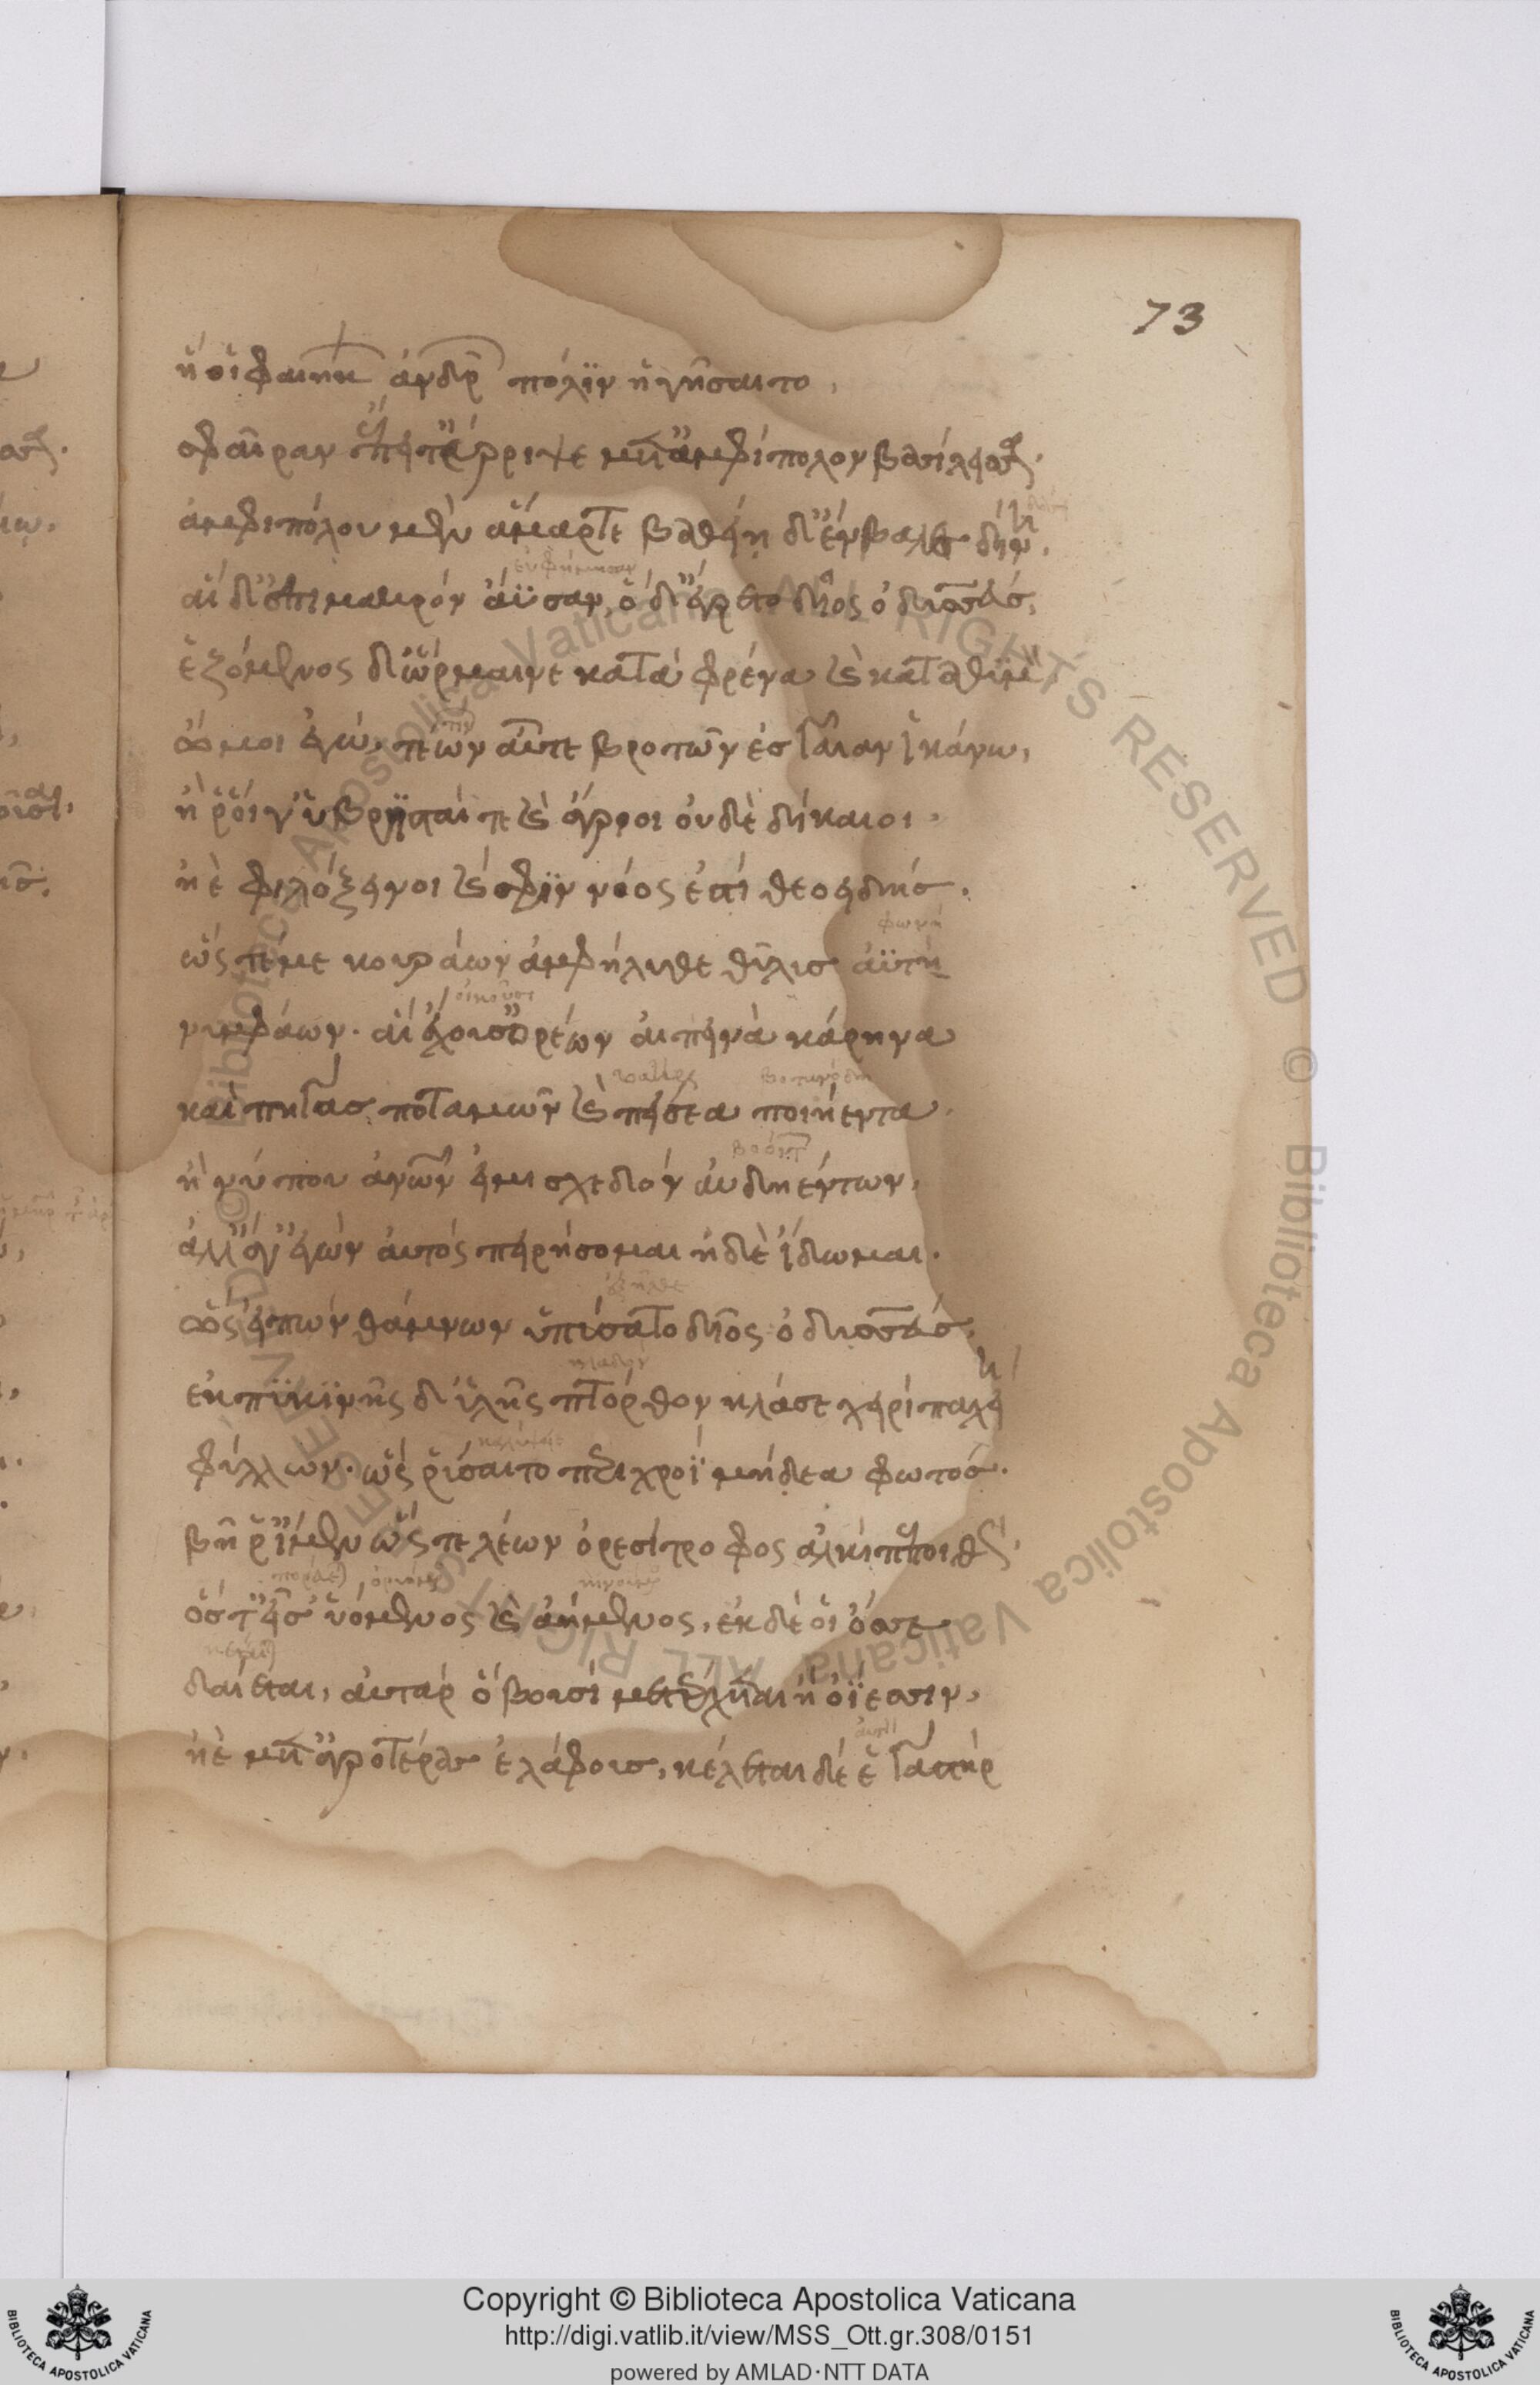 73
ἥ οἱ φαιήκων ἀνδρῶν πόλιν ἡγήσαιτο,
σφαῖραν ἔπειτ' ἔρριψε μετ' ἀμφίπολον βασίλεια.
ἀμφιπόλου μὲν ἅμαρτε βαθείῃ δ' ἔμβαλε δίνῃ.
αἱ δ' ἐπὶ μακρὸν ἄϋσαν, ὁ δ' ἔγρετο δῖος ὀδυσσεύς,
ἑζόμενος δ' ὥρμαινε κατὰ φρένα καὶ κατὰ θυμόν
ὤμοι ἐγώ, τέων αὖτε βροτῶν ἐς γαῖαν ἱκάνω,
ἤ ῥ' οἵ γ' ὑβρισταί τε καὶ ἄγριοι οὐδὲ δίκαιοι.
ἠὲ φιλόξεινοι καί σφιν νόος ἐστὶ θεουδής.
ὥς τέ με κουράων ἀμφήλυθε θῆλυς ἀϋτή
νυμφάων. αἳ ἔχουσ' ὀρέων αἰπεινὰ κάρηνα
καὶ πηγὰς ποταμῶν καὶ πίσεα ποιήεντα.
ἦ νύ που ἀνθρώπων εἰμὶ σχεδὸν αὐδηέντων,
ἀλλ' ἄγ' ἐγὼν αὐτὸς πειρήσομαι ἠδὲ ἴδωμαι.
ὣς εἰπὼν θάμνων ὑπεδύσατο δῖος ὀδυσσεύς,
ἐκ πυκινῆς δ' ὕλης πτόρθον κλάσε χειρὶ παχείῃ
φύλλων. ὡς ῥύσαιτο περὶ χροῒ μήδεα φωτός.
βῆ ῥ' ἴμεν ὥς τε λέων ὀρεσίτροφος ἀλκὶ πεποιθώς,
ὅς τ' εἶσ' ὑόμενος καὶ ἀήμενος, ἐκ δέ οἱ ὄσσε
δαίεται, αὐτὰρ ὁ βουσὶ μετέρχεται ἢ ὀΐεσσιν,
ἠὲ μετ' ἀγροτέρας ἐλάφους, κέλεται δέ ἑ γαστήρ
Copyright © Biblioteca Apostolica Vaticana
http://digi.vatlib.it/view/MSS_Ott.gr.308/0151
powered by AMLAD·NTT DATA